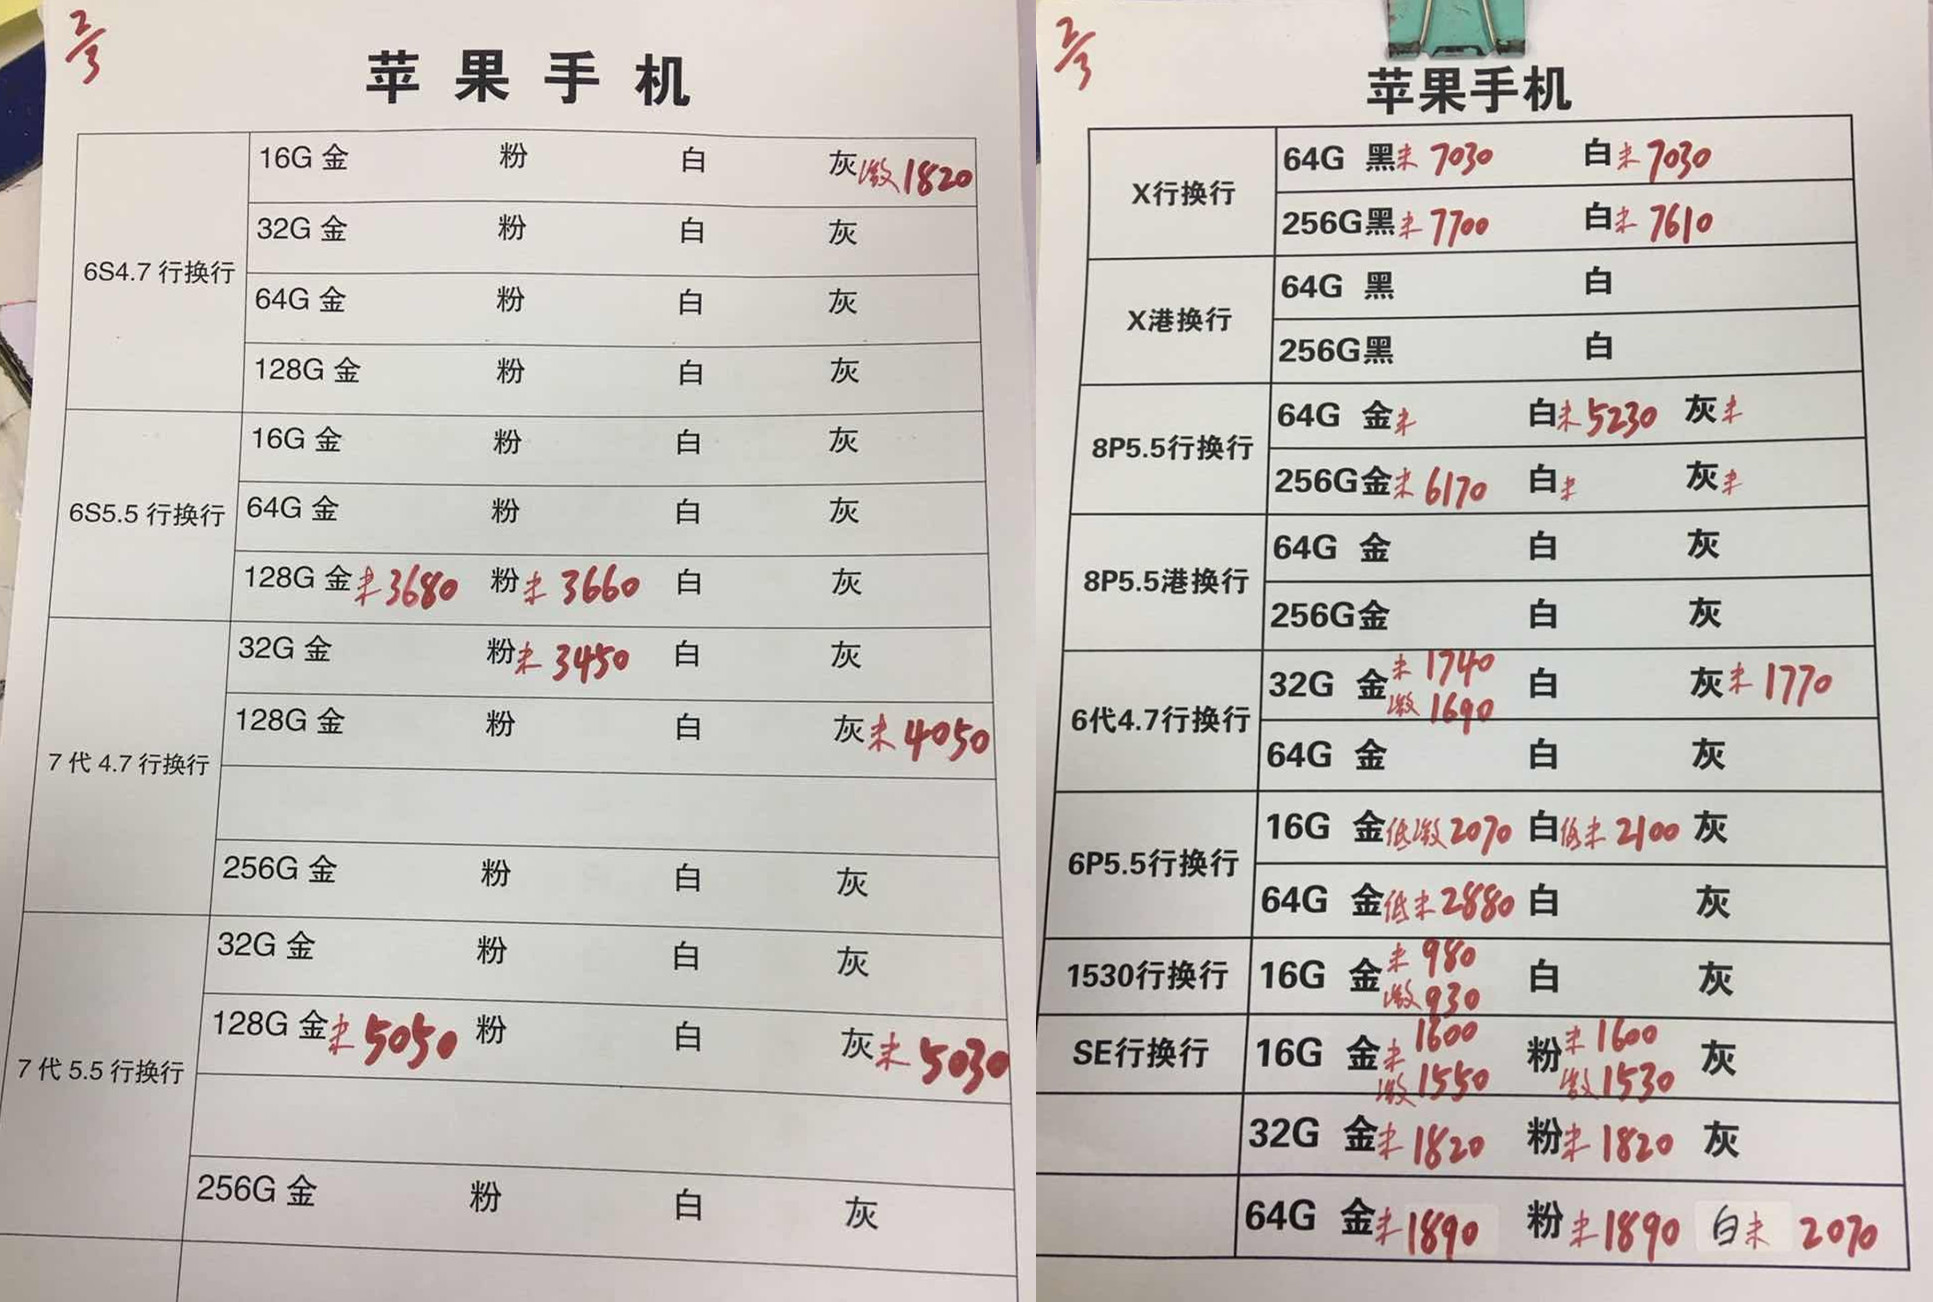 2/3
苹果手机
6S4.7 行换行
16G 金 粉 白 灰 激1820
32G 金 粉 白 灰
64G 金 粉 白 灰
128G 金 粉 白 灰
6S5.5 行换行
16G 金 粉 白 灰
64G 金 粉 白 灰
128G 金未3680 粉未3660 白 灰
7代4.7行换行
32G 金 粉未3450 白 灰
128G 金 粉 白 灰未4050
256G 金 粉 白 灰
7代5.5行换行
32G 金 粉 白 灰
128G 金未5050 粉 白 灰未5030
256G 金 粉 白 灰
2/3
苹果手机
X行换行
64G 黑未7030 白未7030
256G黑未7700 白未7610
X港换行
64G 黑 白
256G黑 白
8P5.5行换行
64G 金未 白未5230 灰未
256G金未6170 白未 灰未
8P5.5港换行
64G 金 白 灰
256G金 白 灰
6代4.7行换行
32G 金未1740 激1690 白 灰未1770
64G 金 白 灰
6P5.5行换行
16G 金低激2070 白低未2100 灰
64G 金低未2880 白 灰
1530行换行
16G 金未980 激930 白 灰
SE行换行
16G 金未1600 激1550 粉未1600 激1530 灰
32G 金未1820 粉未1820 灰
64G 金未1890 粉未1890 白未2070